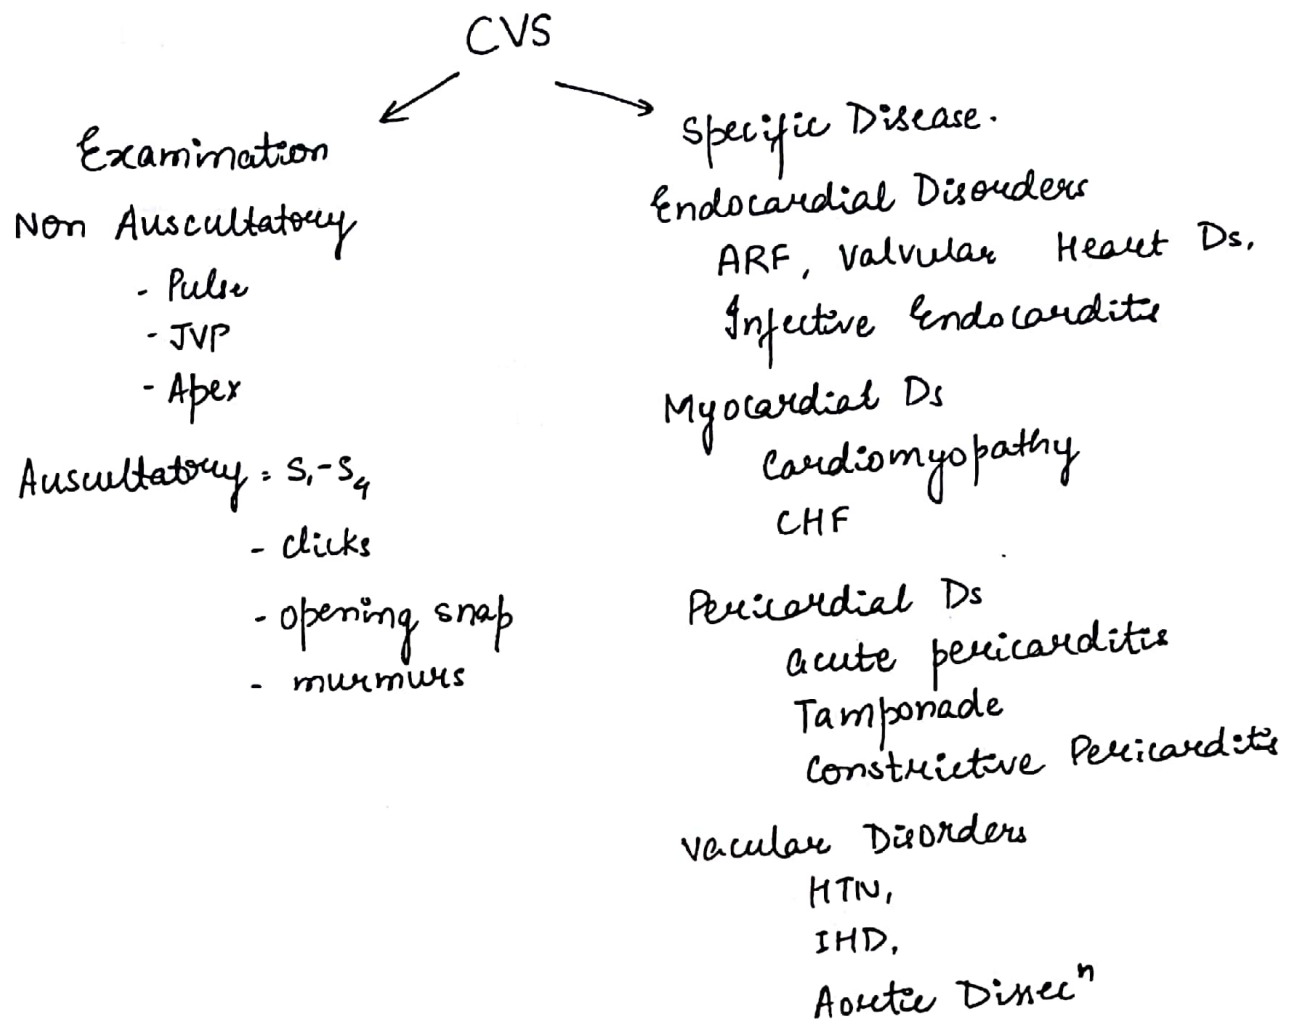 CVS
Examination
Non Auscultatory
- Pulse
- JVP
- Apex
Auscultatory = S₁-S₄
- clicks
- opening snap
- murmurs
Specific Disease.
Endocardial Disorders
ARF, Valvular Heart Ds,
Infective Endocarditis
Myocardial Ds
Cardiomyopathy
CHF
Pericardial Ds
acute pericarditis
Tamponade
Constrictive Pericarditis
Vacular Disorders
HTN,
IHD,
Aortic Dissecⁿ